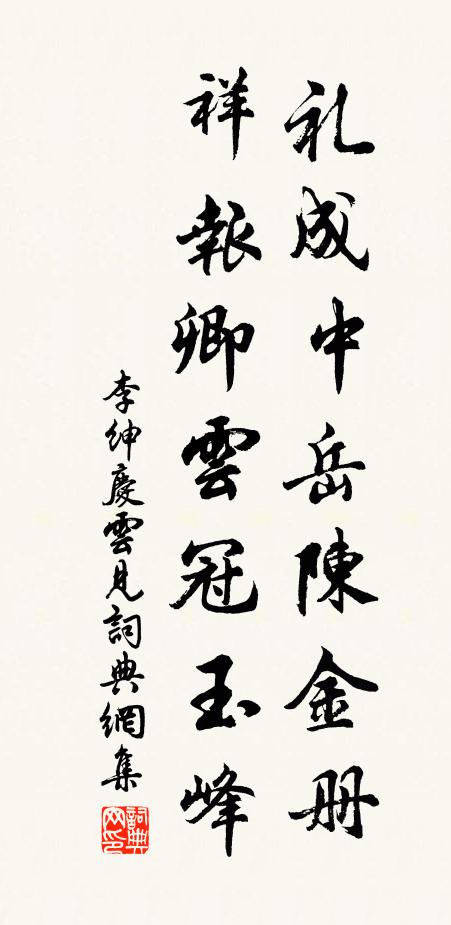 礼成中岳陳金册
祥報卿雲冠玉峰
李紳慶雲見詞典網集
詞典网印